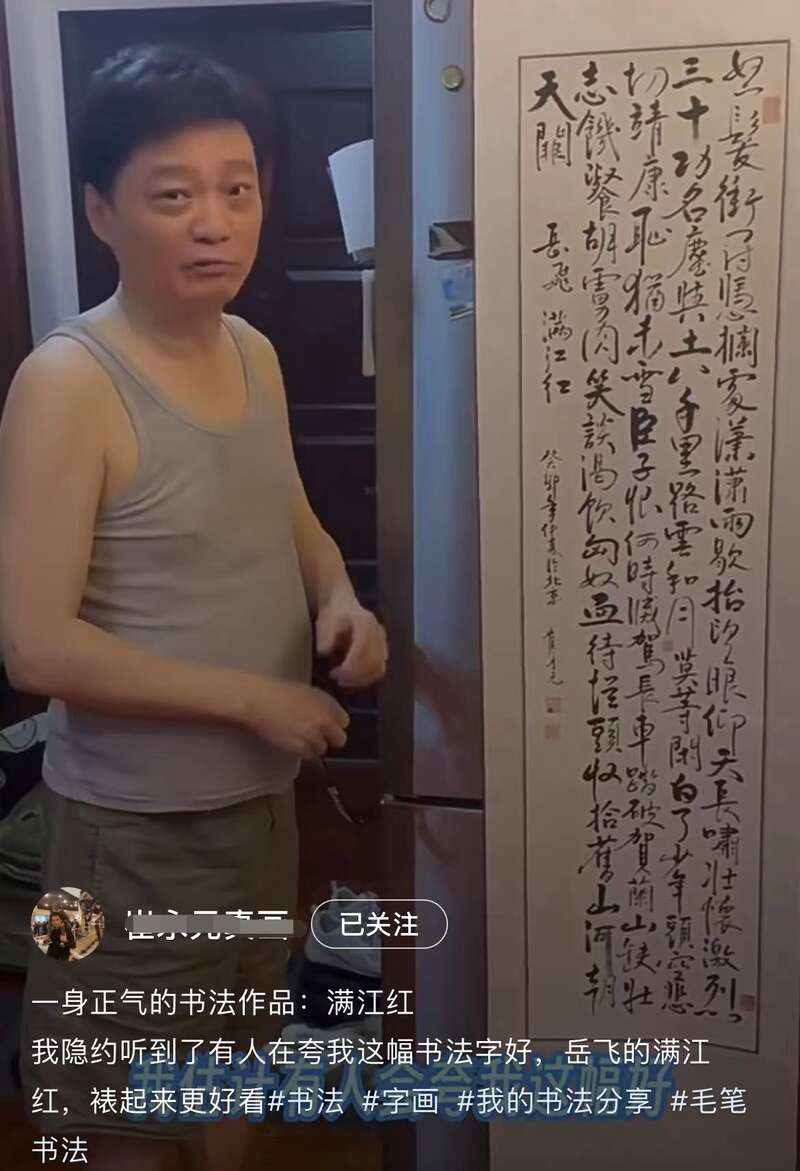 怒髮衝冠憑欄處潇潇雨歇抬望眼仰天長嘯壯懷激烈
三十功名塵與土八千里路雲和月莫等閑白了少年頭空悲
切靖康恥猶未雪臣子恨何時滅駕長車踏破賀蘭山缺壯
志饑餐胡虜肉笑談渴飲匈奴血待從頭收拾舊山河朝
天闕
岳飛 满江红
癸卯年仲夏於北京 崔永元
已关注
一身正气的书法作品：满江红
我隐约听到了有人在夸我这幅书法字好，岳飞的满江
红，裱起来更好看#书法 #字画 #我的书法分享 #毛笔
书法
我估计有人会夸我这幅好